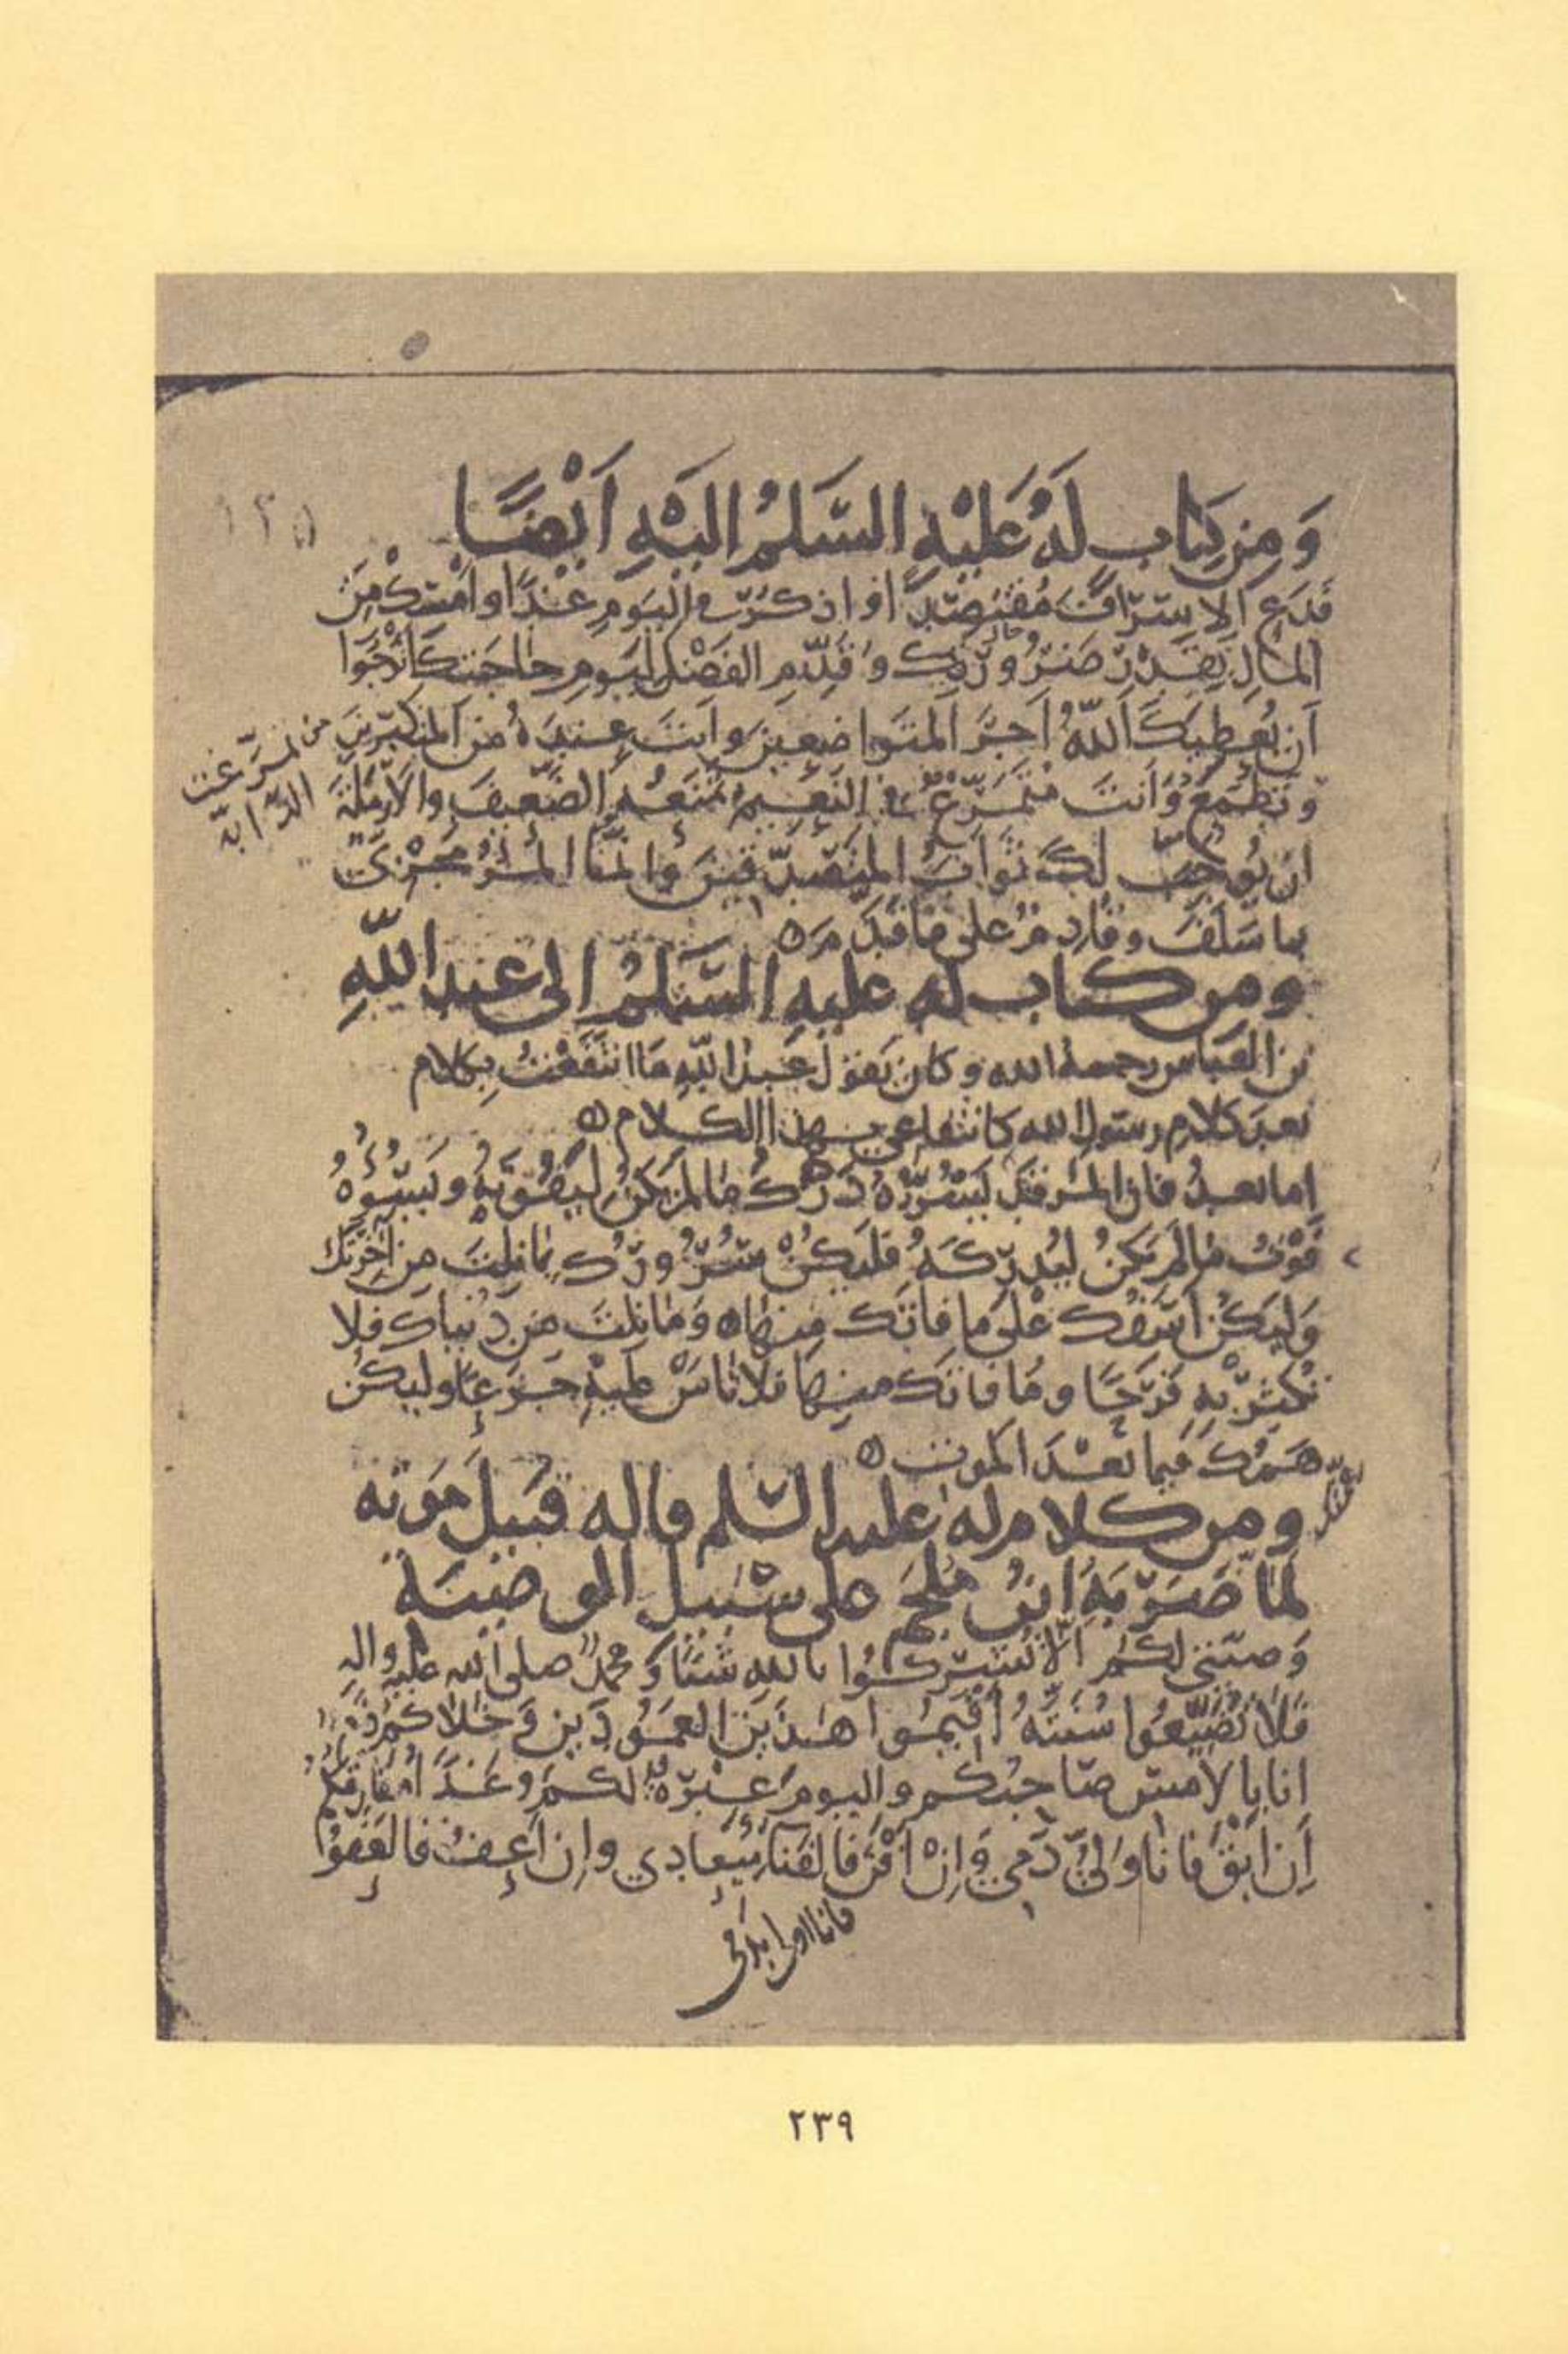 ١٢٥
وَمِن كِتَابٍ لَهُ عَلَيْهِ السَّلمُ اِلَيْهِ اَيْضًا
فَدَعِ الاِسْرَافَ مُقْتَصِدًا وَاذكُرْ فِي اليَوْمِ غَدًا وَامْسِكْ مِنَ
المَالِ بِقَدْرِ ضَرُورَتِكَ وَقَدِّمِ الفَضْلَ لِيَوْمِ حَاجَتِكَ اَتَرْجُوا
اَن يُعْطِيَكَ اللّهُ اَجْرَ المُتَوَاضِعِينَ وَاَنتَ عِندَهُ مِنَ المُتَكَبِّرِينَ
وَتَطْمَعُ وَاَنتَ مُتَمَرِّغٌ فِي النَّعِيمِ تَمْنَعُهُ الضَّعِيفَ وَالاَرْمَلَةَ
من تمرّغت
الدّابّة
اَن يُوجِبَ لَكَ ثَوَابَ المُتَصَدِّقِينَ وَاِنَّمَا المَرْءُ مَجْزِيٌّ
بِمَا سَلَفَ وَقَادِمٌ عَلَى مَا قَدَّمَ ه
وَمِن كِتَابٍ لَهُ عَلَيهِ السَّلمُ اِلى عَبدِ اللّهِ
بنِ العَبَّاسِ رحمهُ الله وكان يَقُولُ عَبدُ اللّهِ مَا انتَفَعْتُ بِكَلام
بَعدَ كَلامِ رسُولِ الله كَانتِفاعي بِهذا الكَلام ه
اما بعدُ فان المرءَ قَد يَسُرُّهُ دَرْكُ مَا لَم يَكُن لِيَفُوتَهُ وَيَسُوءُهُ
فَوْتُ مَا لَم يَكُن لِيُدرِكَهُ فَليَكُنْ سُرُورُك بِمَا نِلتَ مِن اٰخِرَتِكَ
وَليَكُن اَسَفُكَ عَلَى مَا فَاتَكَ مِنهَا ه وَمَا نِلتَ مِن دُنيَاكَ فَلا
تُكثِرْ بِهِ فَرَحًا وَمَا فَاتَكَ مِنهَا فَلا تَاسَ عَلَيهِ جَزَعًا وَليَكُن
هَمُّكَ فِيمَا بَعْدَ المَوتِ ه
ومن كلام له عليه السّلم قاله قُبَيلَ مَوته
لَمَّا ضَرَبَهُ ابنُ مُلجَم على سَبيلِ الوصيّة
وَصيَّتي لَكُم اَلّا تُشرِكُوا بالله شَيئًا وَمحمّدٌ صلى الله عليه واله
فَلا تُضَيِّعُوا سُنَّتَهُ اَقيمُوا هذَينِ العَمُودَينِ وَخَلاكُم ذَمٌّ
انا بالامسِ صَاحِبُكُم واليومَ عِبرَةٌ لَكُم وَغَدًا مُفَارِقُكُم
اِن اَبْقَ فَاَنَا وَلِيُّ دَمِي وَاِنْ اَفْنَ فَالفَنَاءُ مِيعَادِي وَاِن اَعفُ فَالعَفوُ
فانا اولى بدمى
٢٣٩